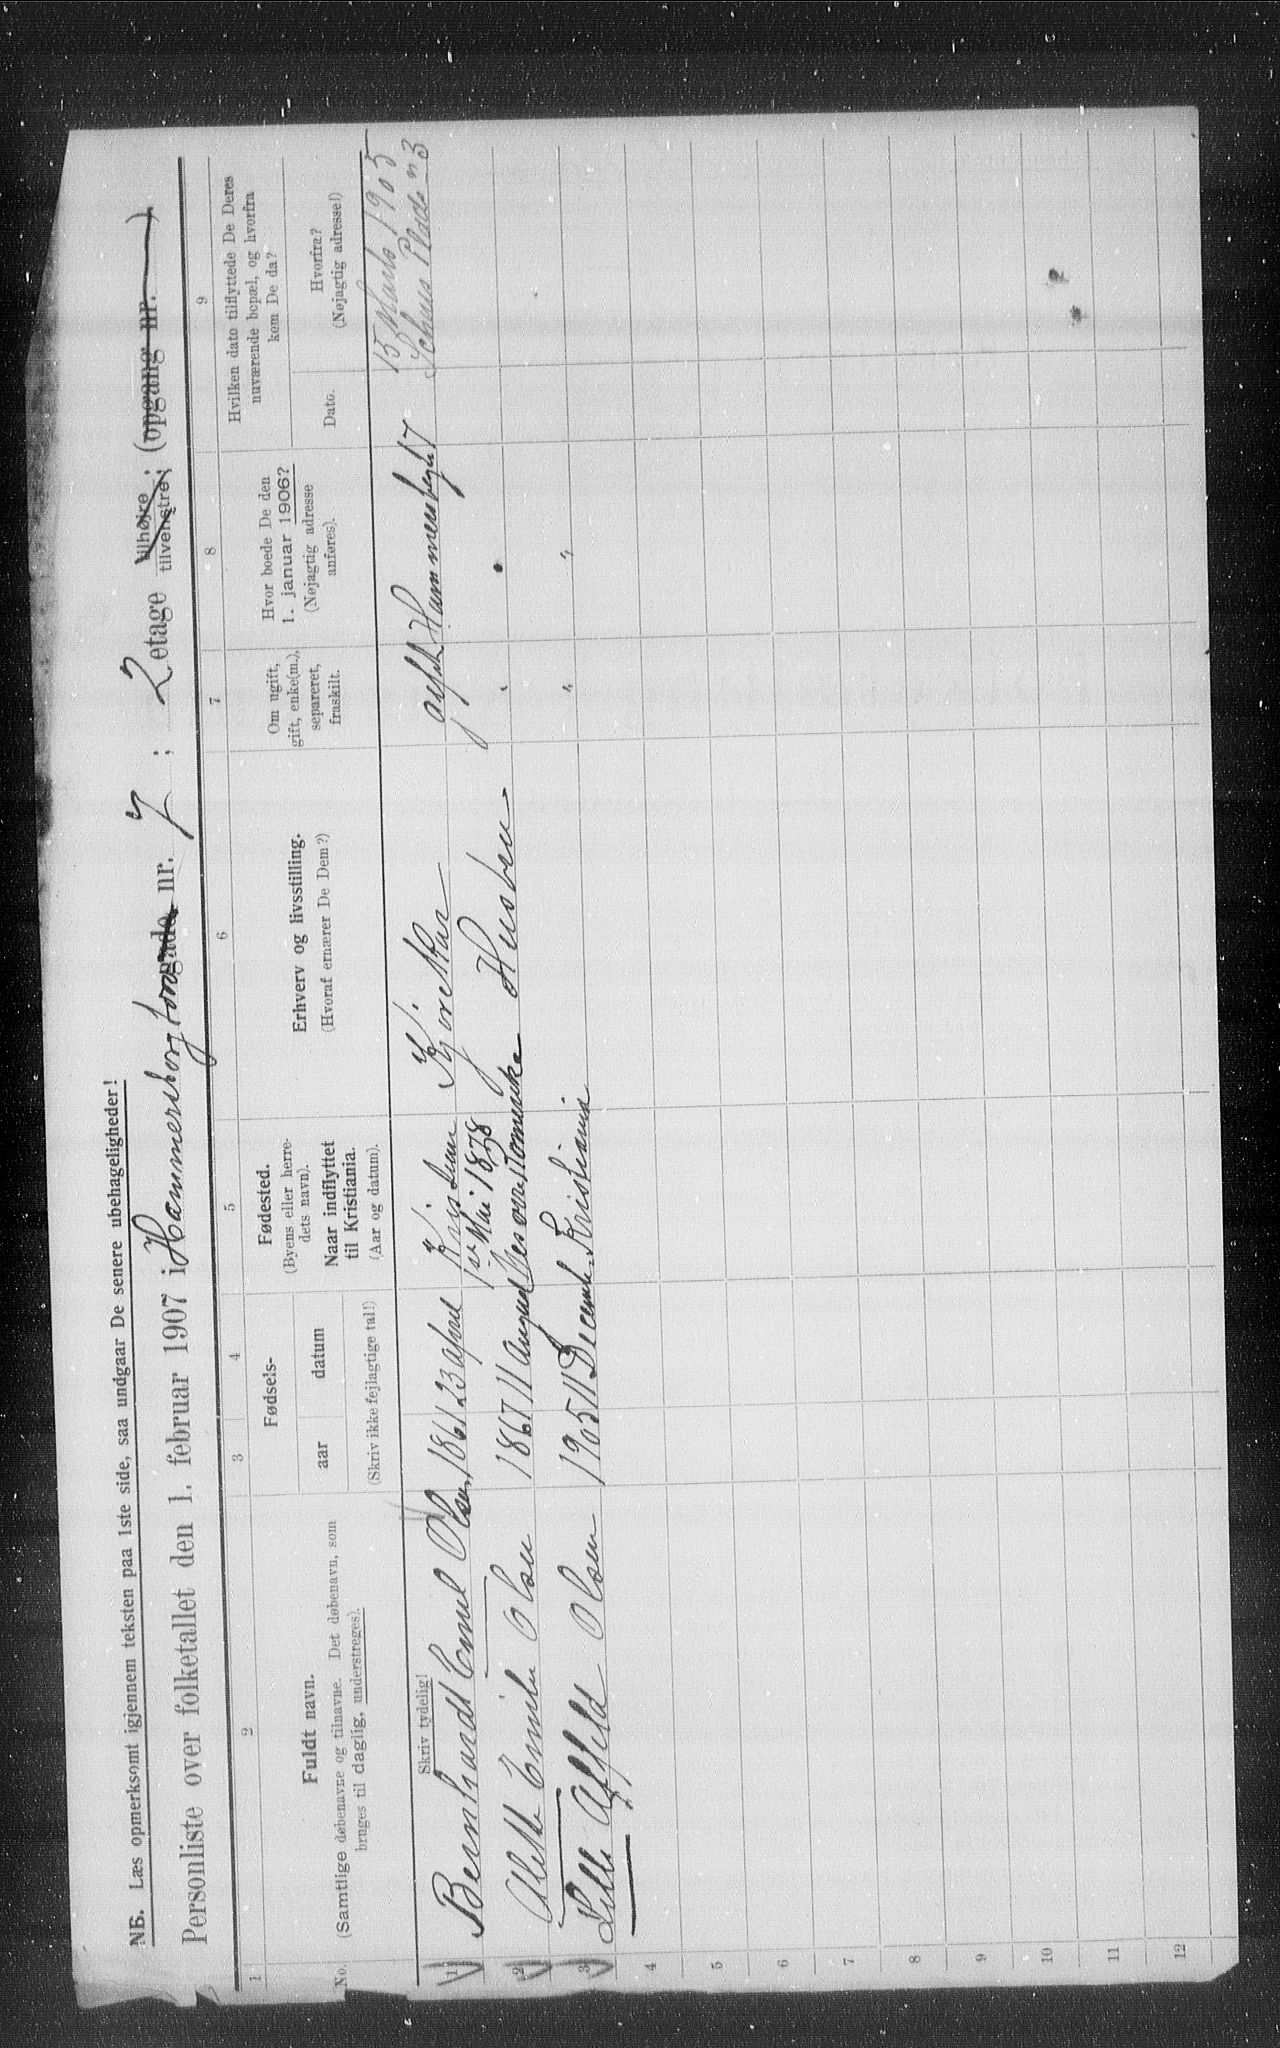 NB. Læs opmerksomt igjennem teksten paa 1ste side, saa undgaar De senere ubehageligheder!
Personliste over folketallet den 1. februar 1907 i Hammersborg torvgade nr. 7 ; 2 etage tilhøjre tilvenstre ; (opgang nr. )
1 2 3 4 5 6 7 8 9
No.
Fuldt navn.
(Samtlige døbenavne og tilnavne. Det døbenavn, som
bruges til daglig, understreges).
Fødsels-
aar datum
(Skriv ikke fejlagtige tal!)
Fødested.
(Byens eller herre-
dets navn).
Naar indflyttet
til Kristiania.
(Aar og datum).
Erhverv og livsstilling.
(Hvoraf ernærer De Dem?)
Om ugift,
gift, enke(m.),
separeret,
fraskilt.
Hvor boede De den
1. januar 1906?
(Nøjagtig adresse
anføres).
Hvilken dato tilflyttede De Deres
nuværende bopæl, og hvorfra
kom De da?
Dato.
Hvorfra?
(Nøjagtig adresse!)
Skriv tydelig!
1 Bernhardt Emil Olsen 1861 23 april 1878 gift 7 15 Marts 1905
Schous Plads n 3
2 Olsen 1867 11 august Husbru " "
3 Lilli Olsen 1905 11 Decemb. Kristiania " "
4
5
6
7
8
9
10
11
12